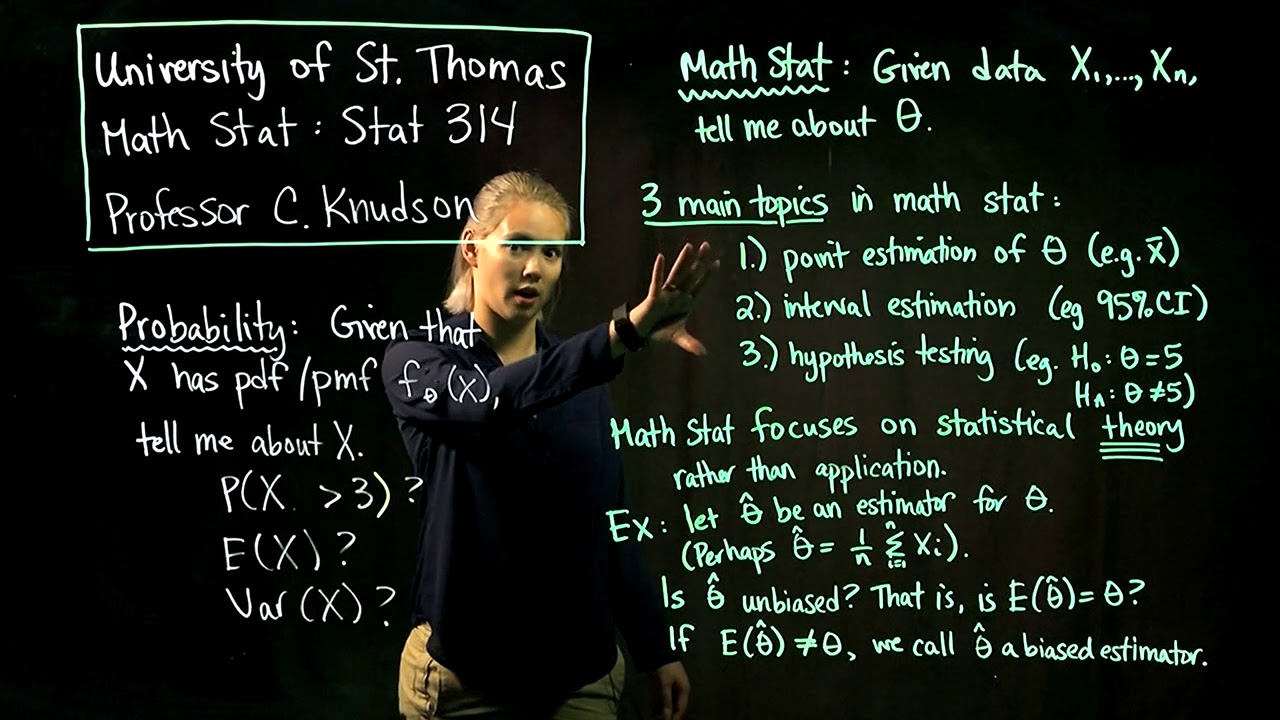 University of St. Thomas
Math Stat : Stat 314
Professor C. Knudson
Probability: Given that
X has pdf/pmf f_θ(x),
tell me about X.
P(X > 3) ?
E(X) ?
Var(X) ?
Math Stat : Given data X₁,..., Xₙ,
tell me about θ.
3 main topics in math stat:
1.) point estimation of θ (e.g. x̄)
2.) interval estimation (eg 95% CI)
3.) hypothesis testing (eg. H₀: θ = 5
H_A: θ ≠ 5)
Math Stat focuses on statistical theory
rather than application.
Ex: let θ̂ be an estimator for θ.
(Perhaps θ̂ = 1/n Σᵢ₌₁ⁿ Xᵢ).
Is θ̂ unbiased? That is, is E(θ̂) = θ?
If E(θ̂) ≠ θ, we call θ̂ a biased estimator.